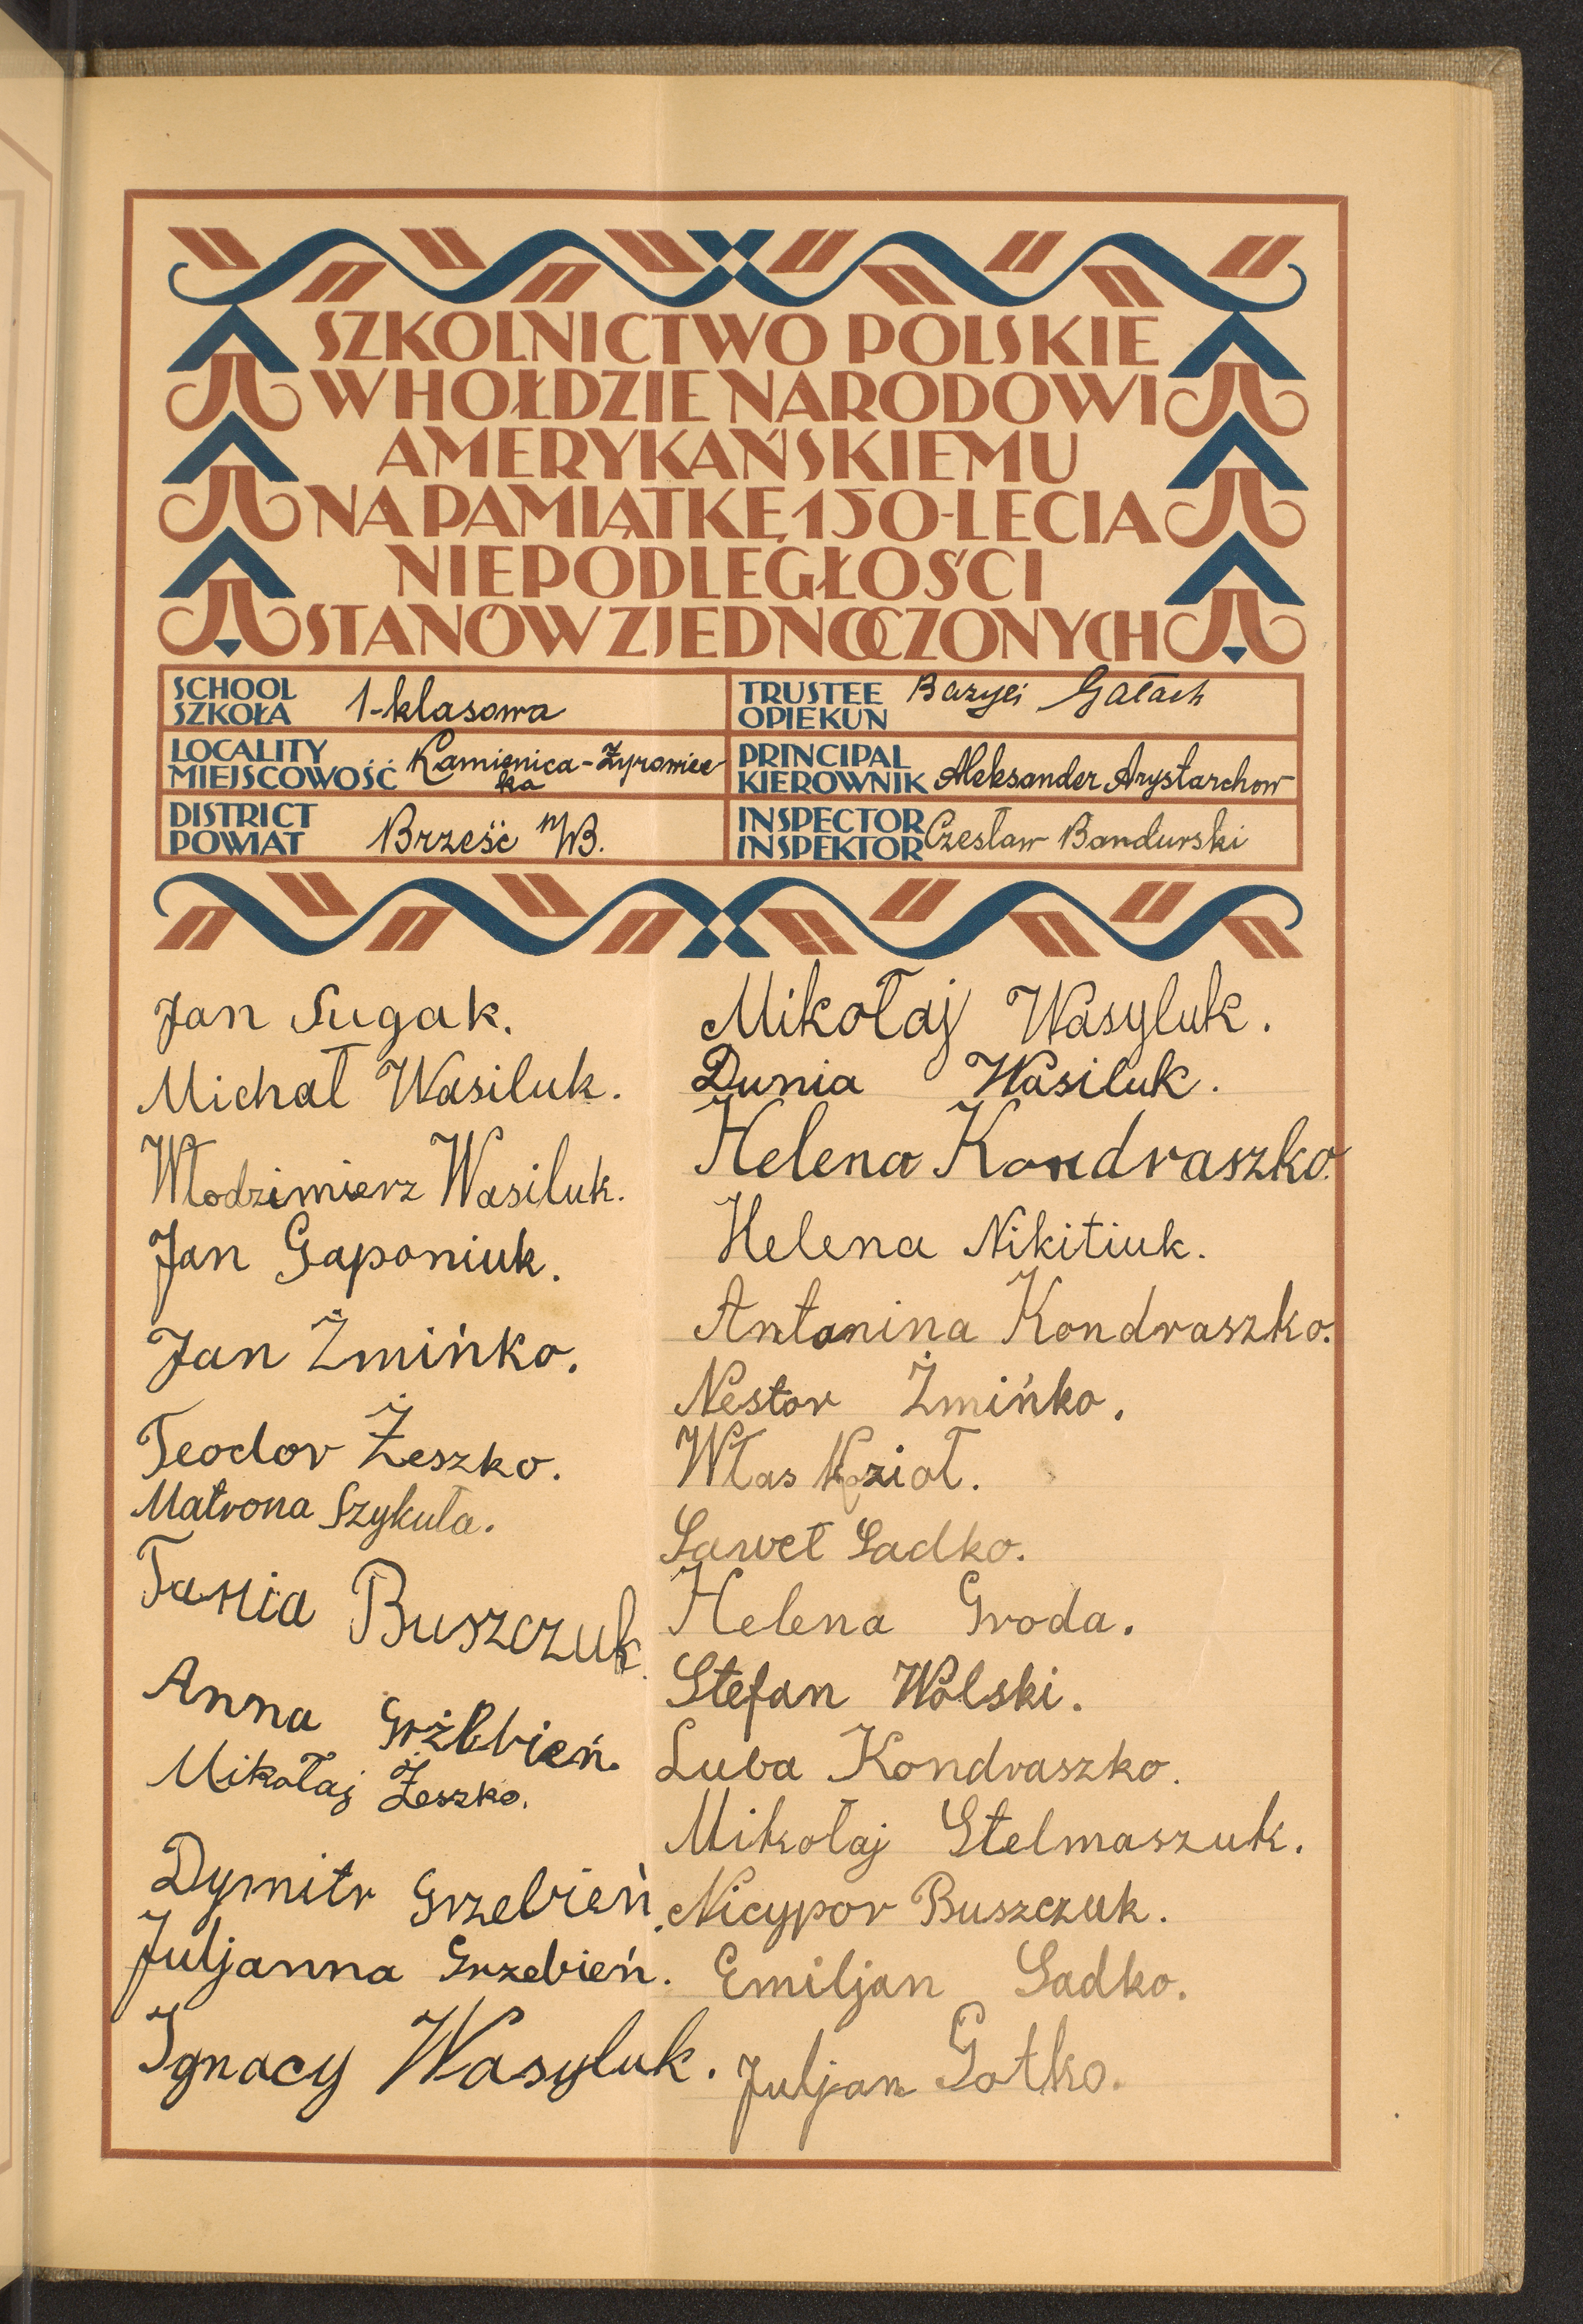 SZKOLNICTWO POLSKIE
W HOŁDZIE NARODOWI
AMERYKAŃSKIEMU
NA PAMIĄTKĘ 150-LECIA
NIEPODLEGŁOŚCI
STANÓW ZJEDNOCZONYCH
SCHOOL
SZKOŁA
1-klasowa
TRUSTEE
OPIEKUN
Bazyli Gałach
LOCALITY
MIEJSCOWOŚĆ
Kamienica-Żyrowiec
ka
PRINCIPAL
KIEROWNIK
Aleksander Arystarchow
DISTRICT
POWIAT
Brześć n/B.
INSPECTOR
INSPEKTOR
Czesław Bandurski
Jan Sugak.
Michał Wasiluk.
Włodzimierz Wasiluk.
Jan Gaponiuk.
Jan Żmińko.
Teodor Żeszko.
Matrona Szykuła.
Tania Buszczuk.
Anna Grzebień.
Mikołaj Żeszko.
Dymitr Grzebień.
Juljanna Grzebień.
Ignacy Wasyluk.
Mikołaj Wasyluk.
Dunia Wasiluk.
Helena Kondraszko.
Helena Nikitiuk.
Antonina Kondraszko.
Nestor Żmińko.
Włas Kozioł.
Saweł Sadko.
Helena Groda.
Stefan Wolski.
Luba Kondraszko.
Mikołaj Stelmaszuk.
Nicypor Buszczuk.
Emiljan Sadko.
Juljan Gotko.